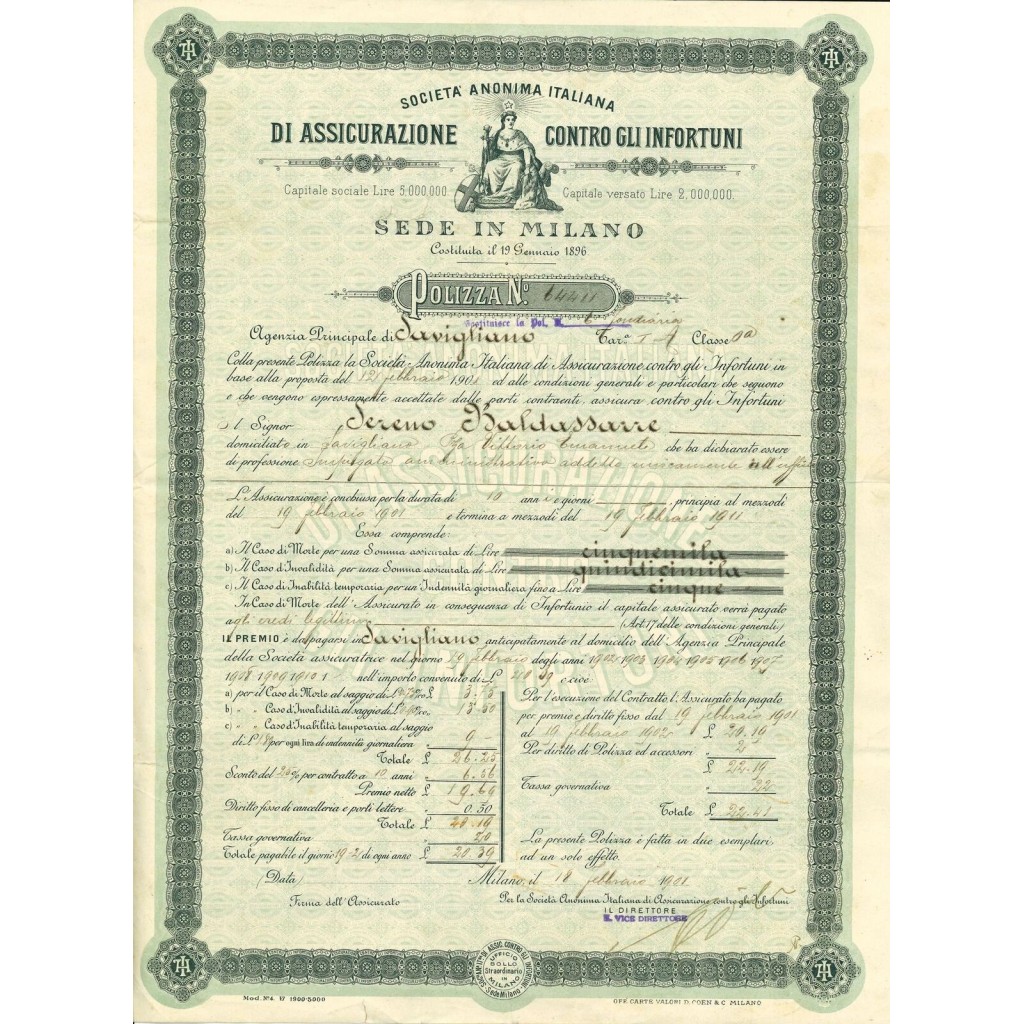 SOCIETÀ ANONIMA ITALIANA
DI ASSICURAZIONE CONTRO GLI INFORTUNI
Capitale sociale Lire 5,000,000 Capitale versato Lire 2,000,000.
SEDE IN MILANO
Costituita il 19 Gennaio 1896
POLIZZA N.º 64411
Sostituisce la Pol. N.
Agenzia Principale di Savigliano Tar.ª Classe
Colla presente Polizza la Società Anonima Italiana di Assicurazione contro gli Infortuni in
base alla proposta del 12 febbraio 1901 ed alle condizioni generali e particolari che seguono
e che vengono espressamente accettate dalle parti contraenti, assicura contro gli Infortuni
il Signor Sereno Baldassarre
domiciliato in Savigliano Pza Vittorio Emanuele che ha dichiarato essere
di professione Impiegato amministrativo addetto unicamente all'ufficio
L'Assicurazione è conchiusa per la durata di 10 anni e giorni , principia al mezzodì
del 19 febbraio 1901 e termina a mezzodì del 19 febbraio 1911
Essa comprende:
a) Il Caso di Morte per una Somma assicurata di Lire cinquemila
b) Il Caso d'Invalidità per una Somma assicurata di Lire quindicimila
c) Il Caso di Inabilità temporaria per un'Indennità giornaliera fino a Lire cinque
In Caso di Morte dell'Assicurato in conseguenza di Infortunio il capitale assicurato verrà pagato
agli eredi legittimi (Art. 17 delle condizioni generali)
IL PREMIO è da pagarsi in Savigliano anticipatamente al domicilio dell'Agenzia Principale
della Società assicuratrice nel giorno 19 febbraio degli anni 1902 1903 1904 1905 1906 1907
1908 1909 1910 nell'importo convenuto di £ 20 39 e cioè:
a) per il Caso di Morte al saggio di £ 0.75 %00 £ 3.75
b) " " Caso d'Invalidità al saggio di £ 0.90 %00 " 13.50
c) " " Caso d'Inabilità temporaria al saggio
di £ 1.80 per ogni lira di indennità giornaliera " 9 -
Totale £ 26.25
Sconto del 25% per contratto a 10 anni " 6.56
Premio netto £ 19.69
Diritto fisso di cancelleria e porti lettere " 0.50
Totale £ 20.19
Tassa governativa " 20
Totale pagabile il giorno 19 2 di ogni anno £ 20.39
Per l'esecuzione del Contratto l'Assicurato ha pagato
per premio e diritto fisso dal 19 febbraio 1901
al 19 febbraio 1902 £ 20.19
Per diritto di Polizza ed accessori " 2
£ 22.19
Tassa governativa " 22
Totale £ 22.41
La presente Polizza è fatta in due esemplari,
ad un solo effetto.
(Data) Milano, il 18 febbraio 1901
Firma dell'Assicurato
Per la Società Anonima Italiana di Assicurazione contro gli Infortuni
IL DIRETTORE
IL VICE DIRETTORE
SOC. ANON. ITAL. DI ASSIC. CONTRO GLI INFORTUNI
UFFICIO
BOLLO
Straordinario
IN
MILANO
Sede Milano
Mod. Nº4. 1900-5000
OFF. CARTE VALORI D. COEN & C. MILANO